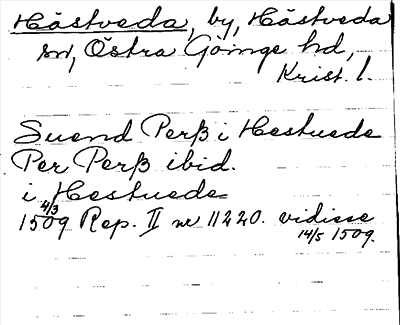 Hästveda, by, Hästveda
sn, Östra Göinge hd,
Krist. l.
Suend Perß i Hestuede
Per Perß ibid.
i Hestuede
4/3
1509 Rep. II nr 11220. vidisse
14/5 1509.